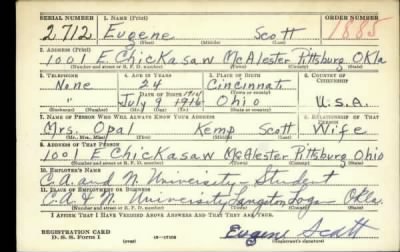 SERIAL NUMBER 1. NAME (Print) ORDER NUMBER
2712 Eugene Scott 1885
(First) (Middle) (Last)
2. ADDRESS (Print)
1001 E. Chickasaw McAlester Pittsburg Okla
(Number and street or R. F. D. number) (Town) (County) (State)
3. TELEPHONE 4. AGE IN YEARS 5. PLACE OF BIRTH 6. COUNTRY OF CITIZENSHIP
None 24 Cincinnati
DATE OF BIRTH (Town or county)
" July 9 1916 Ohio U.S.A.
(Exchange) (Number) (Mo.) (Day) (Yr.) (State or country)
7. NAME OF PERSON WHO WILL ALWAYS KNOW YOUR ADDRESS 8. RELATIONSHIP OF THAT PERSON
Mrs. Opal Kemp Scott Wife
(Mr., Mrs., Miss) (First) (Middle) (Last)
9. ADDRESS OF THAT PERSON
1001 E Chickasaw McAlester Pittsburg Ohio
(Number and street or R. F. D. number) (Town) (County) (State)
10. EMPLOYER'S NAME
C. A. and N. University - Student
11. PLACE OF EMPLOYMENT OR BUSINESS
C. A & N. University Langston Logan Okla.
(Number and street or R. F. D. number) (Town) (County) (State)
I AFFIRM THAT I HAVE VERIFIED ABOVE ANSWERS AND THAT THEY ARE TRUE.
REGISTRATION CARD
D. S. S. Form 1 (over) 16-17105 Eugene Scott
(Registrant's signature)